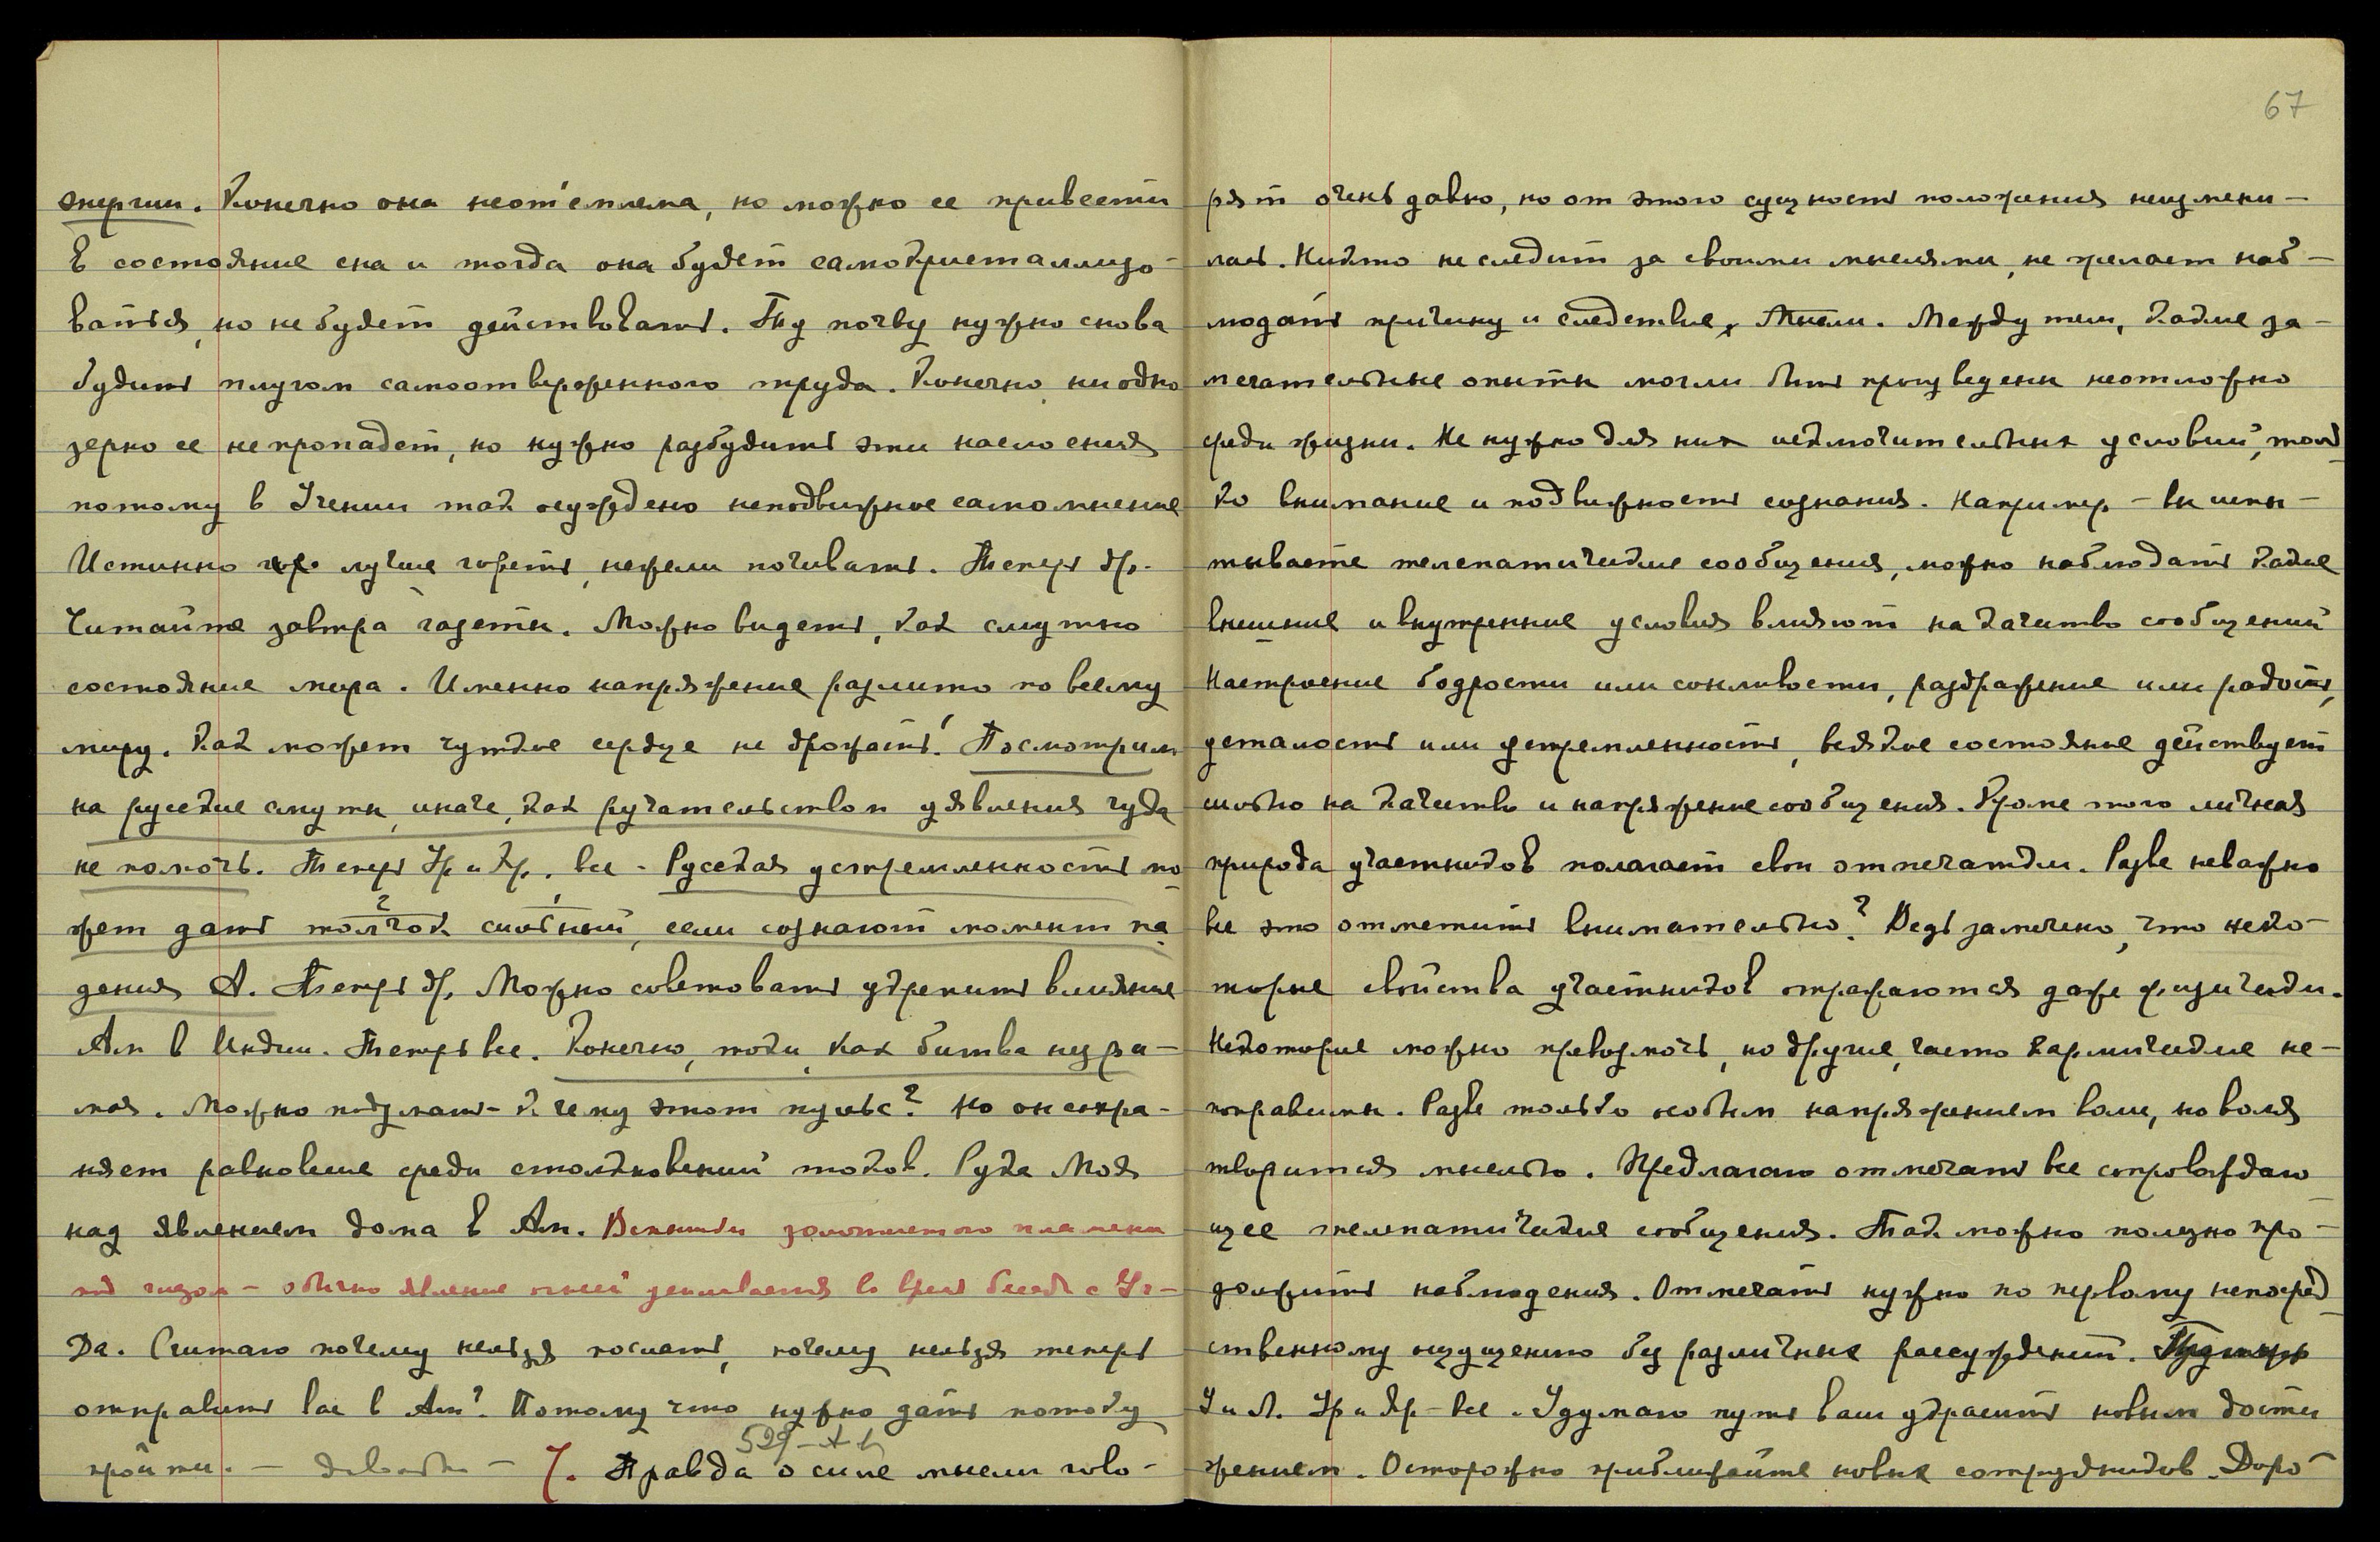 энергии. Конечно она неот'емлема, но можно ее привести
в состояние сна и тогда она будет самокристаллизо-
ваться, но не будет действовать. Ту почву нужно снова
будить плугом самоотверженного труда. Конечно, ни одно
зерно ее не пропадет, но нужно разбудить эти наслоения
потому в Учении так осуждено неподвижное самомнение
Истинно лучше гореть, нежели почивать. Теперь др.
Читайте завтра газеты. Можно видеть, как смутно
состояние мира. Именно напряжение разлито по всему
миру. Как может чуткое сердце не дрожать! Посмотрим
на русские смуты, иначе, как ручательством уявления чуда
не помочь. Теперь Ур и Др. все - Русская устремленность мо-
жет дать толчок сильный, если сознают момент па-
дения А. Теперь др. Можно советовать укрепить влияние
Ам в Индии. Теперь все. Конечно, токи, как битва незри-
мая. Можно подумать - к чему этот пульс? Но он сохра-
няет равновесие среди столкновений токов. Рука Моя
над явлением дома в Ам. Вспышки золотистого пламени
над глазом - обычно явление огней усиливается во время бесед с Уч-
Да. Считаю почему нельзя послать, почему нельзя теперь
отправить вас в Ам? Потому что нужно дать потоку
пройти. -
529 -
7. Правда о силе мысли гово-
67
рят очень давно, но от этого сущность положения не изменил-
лась. Никто не следит за своими мыслями, не желает наб-
людать причину и следствие мысли. Между тем, какие за-
мечательные опыты могли быть произведены неотложно
среди жизни. Не нужно для них исключительных условий, толь
ко внимание и подвижность сознания. Например - вы испы-
тываете телепатические сообщения, можно наблюдать какие
внешние и внутренние условия влияют на качество сообщений
Настроение бодрости или сонливости, раздражение или радость,
усталость или устремленность, всякое состояние действует
сильно на качество и напряжение сообщения. Кроме того личная
природа участников полагает свои отпечатки. Разве не важно
все это отметить внимательно? Ведь замечено, что неко-
торые свойства участников отражаются даже физически.
Некоторые можно превозмочь, но другие, часто кармические не-
поправимы. Разве только особым напряжением воли, но воля
творится мыслью. Предлагаю отмечать все сопровождаю
щее телепатические сообщения. Так можно полезно про-
должить наблюдения. Отмечать нужно по первому непосред
ственному ощущению без различных рассуждений.
У и Л. Ур и Др - все. Удумаю путь ваш украсить новым дости
жением. Осторожно приближайте новых сотрудников. Доро-